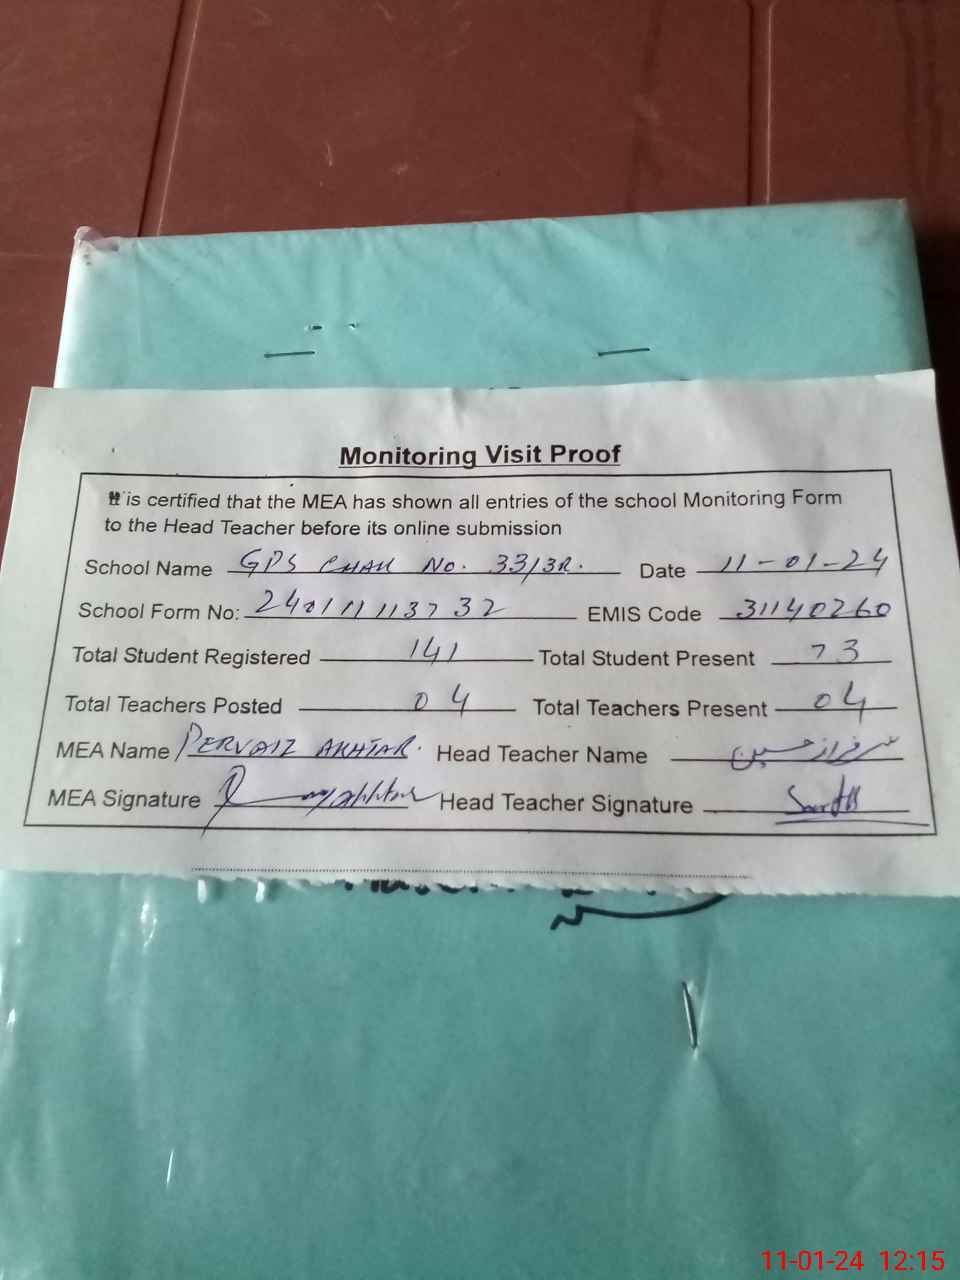 Monitoring Visit Proof
It is certified that the MEA has shown all entries of the school Monitoring Form
to the Head Teacher before its online submission
School Name GPS CHAK NO. 33/3R. Date 11-01-24
School Form No: 240111113732 EMIS Code 31140260
Total Student Registered 141 Total Student Present 73
Total Teachers Posted 04 Total Teachers Present 04
MEA Name PERVAIZ AKHTAR. Head Teacher Name سرفراز حسین
MEA Signature Head Teacher Signature
11-01-24 12:15